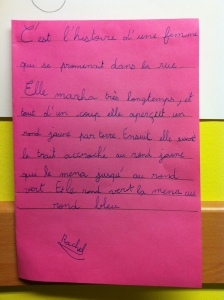 C'est l'histoire d'une femme
qui se promenait dans la rue.
Elle marha très longtemps, et
tout d'un coup elle aperçut un
rond jaune par terre. Ensuit elle suivit
le trait accroché au rond jaune
qui le mena jusqu'au rond
vert. Et le rond vert la mena au
rond bleu.
Rachel